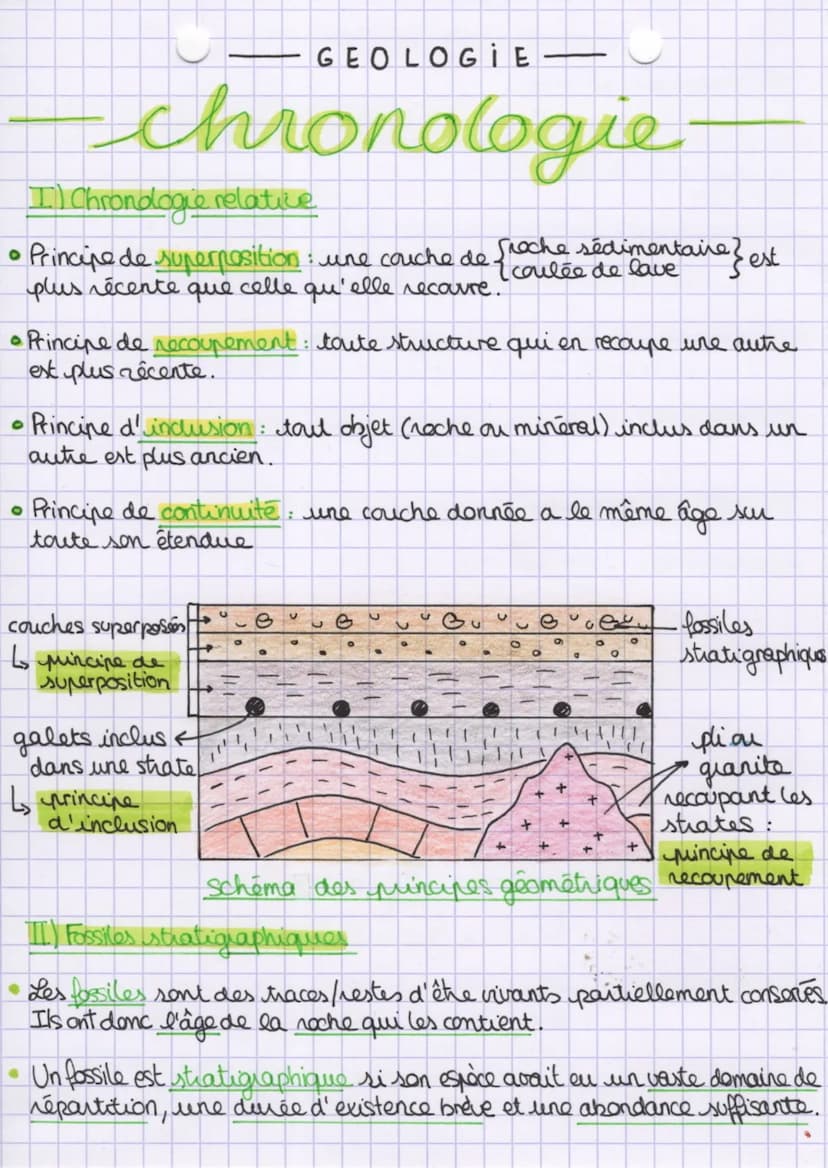 GEOLOGiE
chronologie
I) Chronologie relative
• Principe de superposition : une couche de {roche sédimentaire} est
{coulée de lave}
plus récente que celle qu'elle recouvre.
• Principe de recoupement : toute structure qui en recoupe une autre
est plus récente.
• Principe d'inclusion : tout objet (roche ou minéral) inclus dans un
autre est plus ancien.
• Principe de continuité : une couche donnée a le même âge sur
toute son étendue
couches superposés
↳ principe de
superposition
galets inclus
dans une strate
↳ principe
d'inclusion
fossiles
stratigraphique
pli ou
granite
recoupant les
strates :
principe de
recoupement
schéma des principes géométriques
II) Fossiles stratigraphiques
• Les fossiles sont des traces/restes d'être vivants partiellement conservés
Ils ont donc l'âge de la roche qui les contient.
• Un fossile est stratigraphique si son espèce avait eu un vaste domaine de
répartition, une durée d'existence brève et une abondance suffisante.